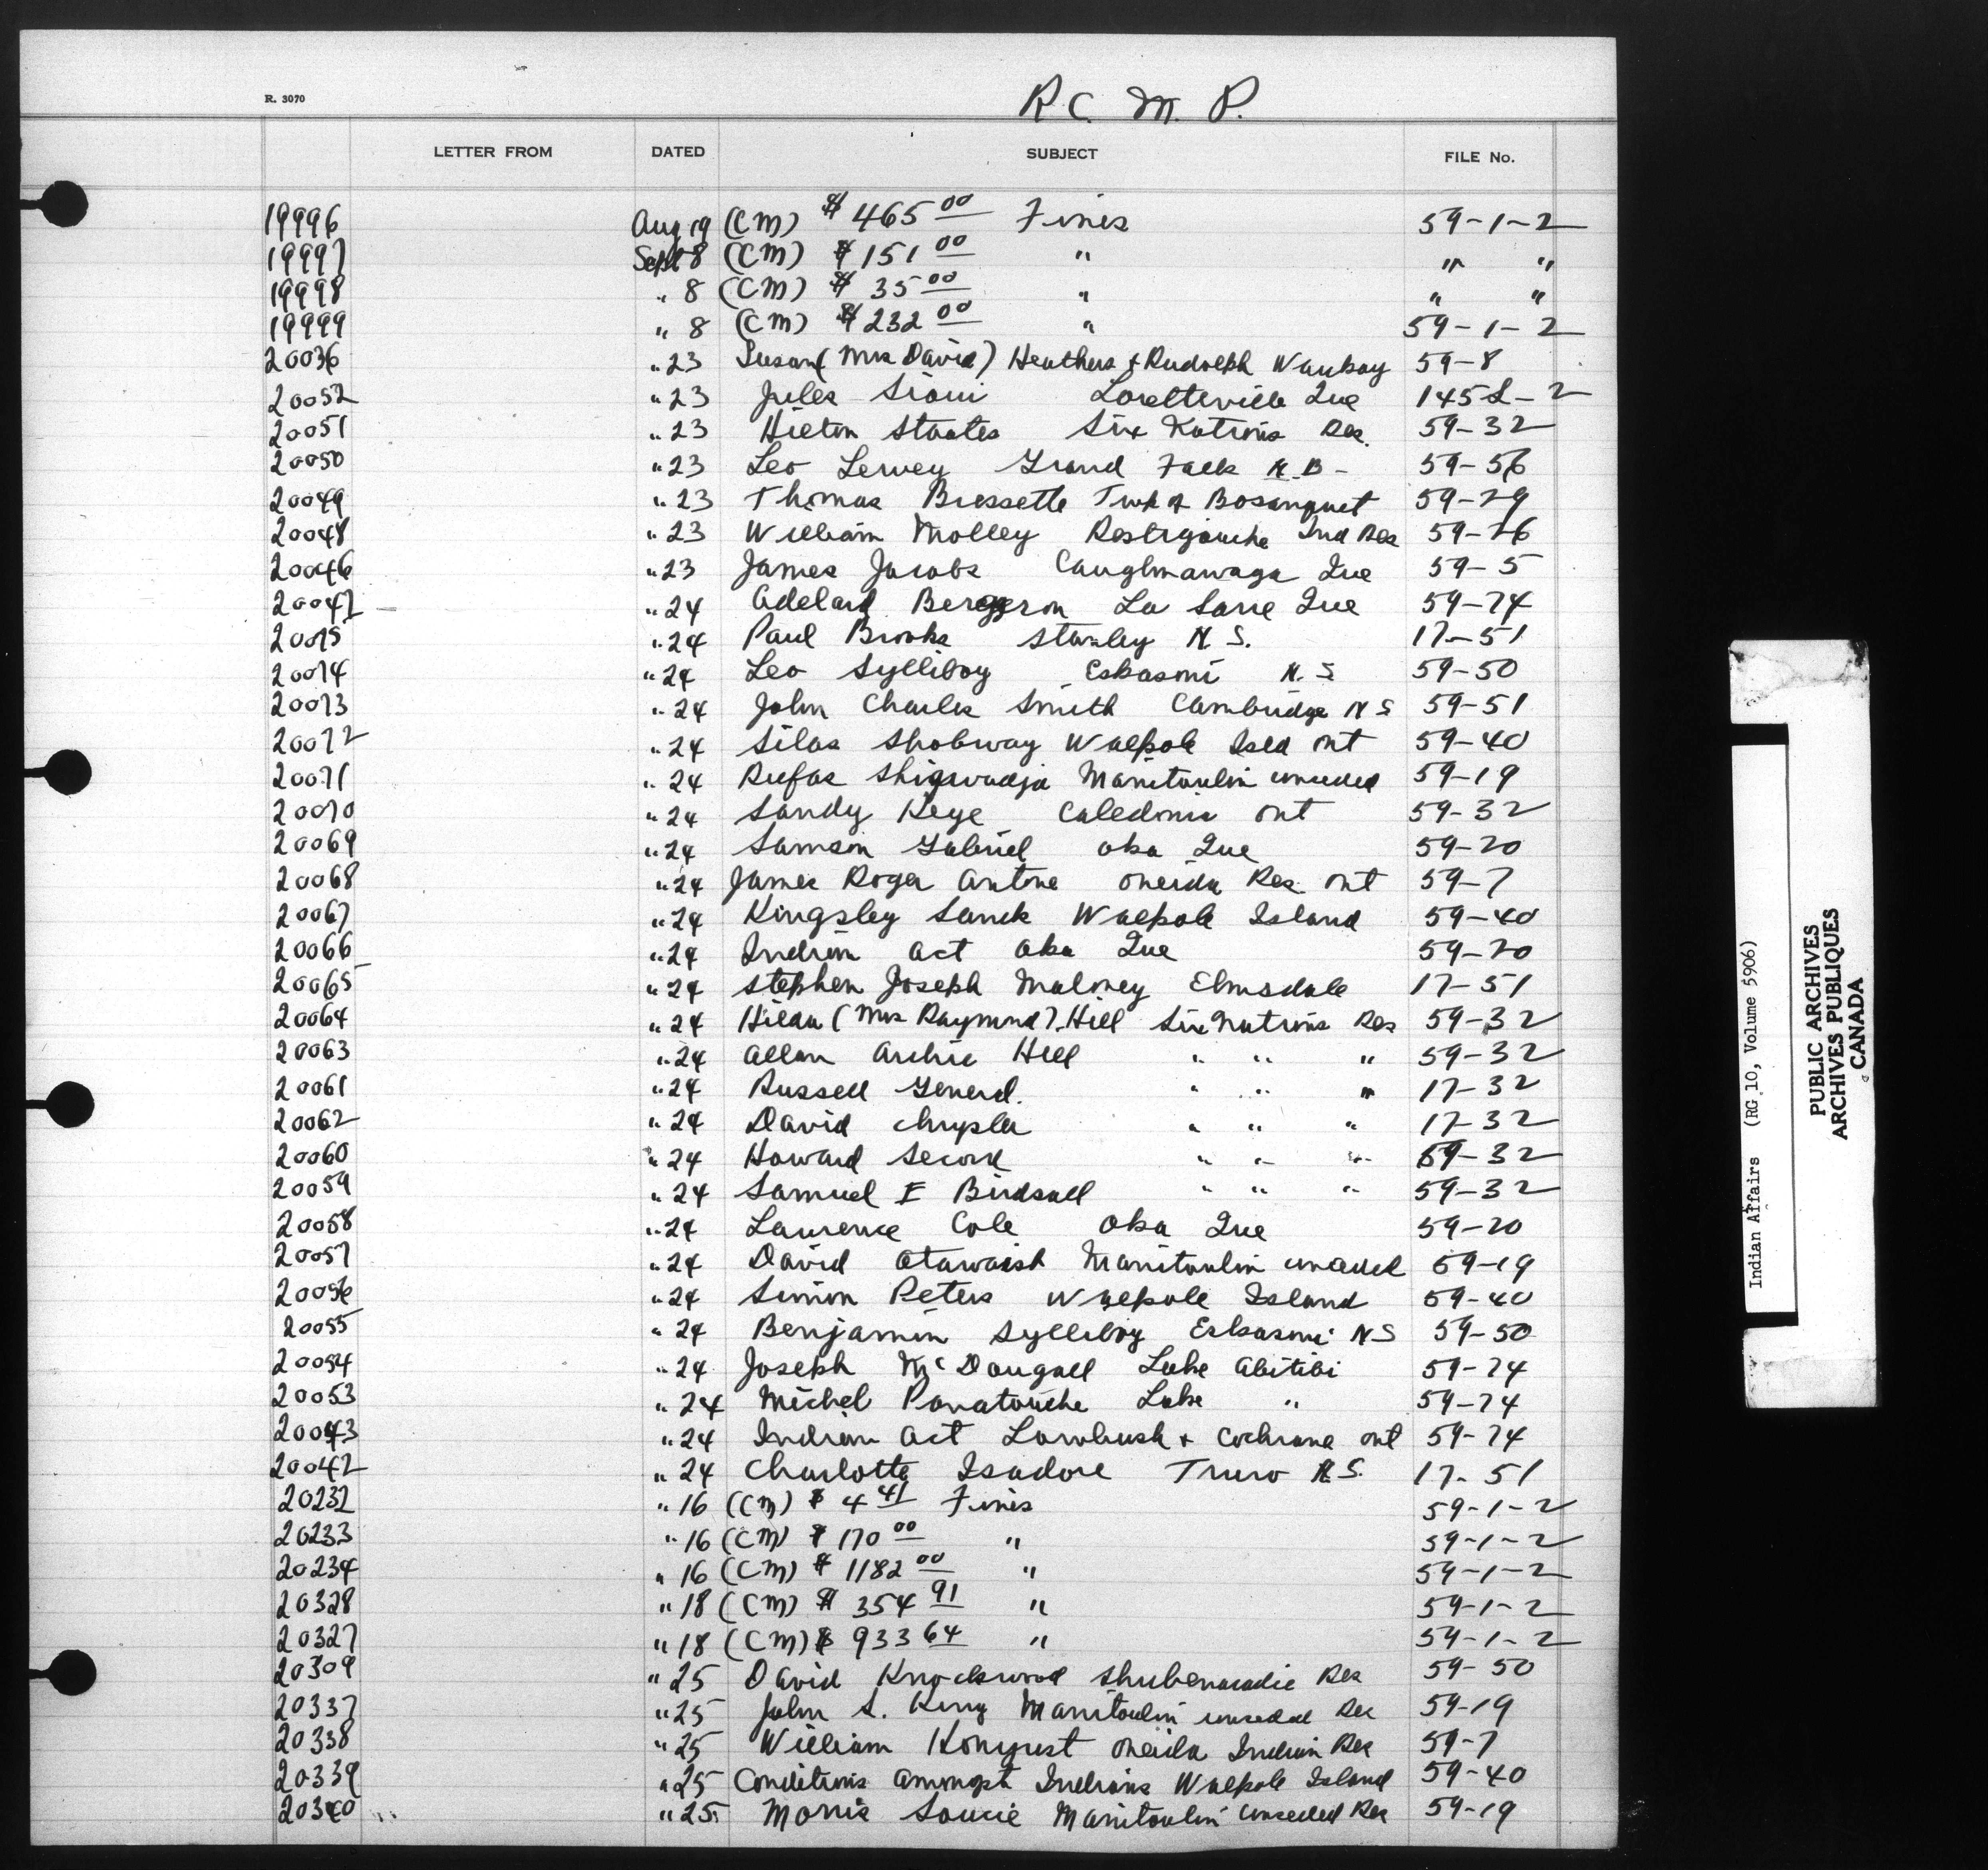 R. 3070
R. C. M. P.
LETTER FROM DATED SUBJECT FILE No.
19996 Aug 19 (CM) $ 465 00 Fines 59-1-2
19997 Sept 8 (CM) $ 151 00 " " "
19998 " 8 (CM) $ 35 00 " " "
19999 " 8 (CM) $ 232 00 " 59-1-2
20036 " 23 Susan (Mrs David) Heathers & Rudolph Waubay 59-8
20052 " 23 Jules Sioui Loretteville Que 145 2
20051 " 23 Hilton Staates Six Nations Res. 59-32
20050 " 23 Leo Lervey Grand Falls N.B- 59-56
20049 " 23 Thomas Bressette Twp of Bosanquet 59-29
20048 " 23 William Molley Restigouche Ind Res 59-26
20046 " 23 James Jacobs Caughnawaga Que 59-5
20047 " 24 Adelard Bergeron La Sarre Que 59-74
20075 " 24 Paul Brooks Stanley N.S. 17-51
20074 " 24 Leo Sylliboy Eskasoni N.S 59-50
20073 " 24 John Charles Smith Cambridge N S 59-51
20072 " 24 Silas Shobway Walpole Isld Ont 59-40
20071 " 24 Rufas Shigwadja Manitoulin unceded 59-19
20070 " 24 Sandy Keye Caledonia Ont 59-32
20069 " 24 Samson Gabriel Oka Que 59-20
20068 " 24 James Roger Antone Oneida Res. Ont 59-7
20067 " 24 Kingsley Sands Walpole Island 59-40
20066 " 24 Indian Act Oka Que 59-20
20065 " 24 Stephen Joseph Maloney Elmsdale 17-51
20064 " 24 Hilda (Mrs Raymond) Hill Six Nations Res 59-32
20063 " 24 Allan Archie Hill " " " 59-32
20061 " 24 Russell General. " " " 17-32
20062 " 24 David Chrysler " " " 17-32
20060 " 24 Howard Secord " " " 59-32
20059 " 24 Samuel E Birdsall " " " 59-32
20058 " 24 Laurence Cole Oka Que 59-20
20057 " 24 David Otawaish Manitoulin unceded 59-19
20056 " 24 Simon Peters Walpole Island 59-40
20055 " 24 Benjamin Sylliboy Eskasoni N S 59-50
20054 " 24 Joseph McDougall Lake Abitibi 59-74
20053 " 24 Michel Panatouche Lake " 59-74
20043 " 24 Indian Act Lowbush & Cochrane Ont 59-74
20042 " 24 Charlotte Isadore Truro N.S. 17-51
20232 " 16 (CM) $ 4 41 Fines 59-1-2
20233 " 16 (CM) $ 170 00 " 59-1-2
20234 " 16 (CM) $ 1182 00 " 59-1-2
20328 " 18 (CM) $ 354 91 " 59-1-2
20327 " 18 (CM) $ 933 64 " 59-1-2
20309 " 25 David Knockwood Shubenacadie Res 59-50
20337 " 25 John S. King Manitoulin unceded Res 59-19
20338 " 25 William Honyust Oneida Indian Res 59-7
20339 " 25 Conditions amongst Indians Walpole Island 59-40
20340 " 25 Morris Soucie Manitoulin unceded Res 59-19
Indian Affairs (RG 10, Volume 5906)
PUBLIC ARCHIVES
ARCHIVES PUBLIQUES
CANADA